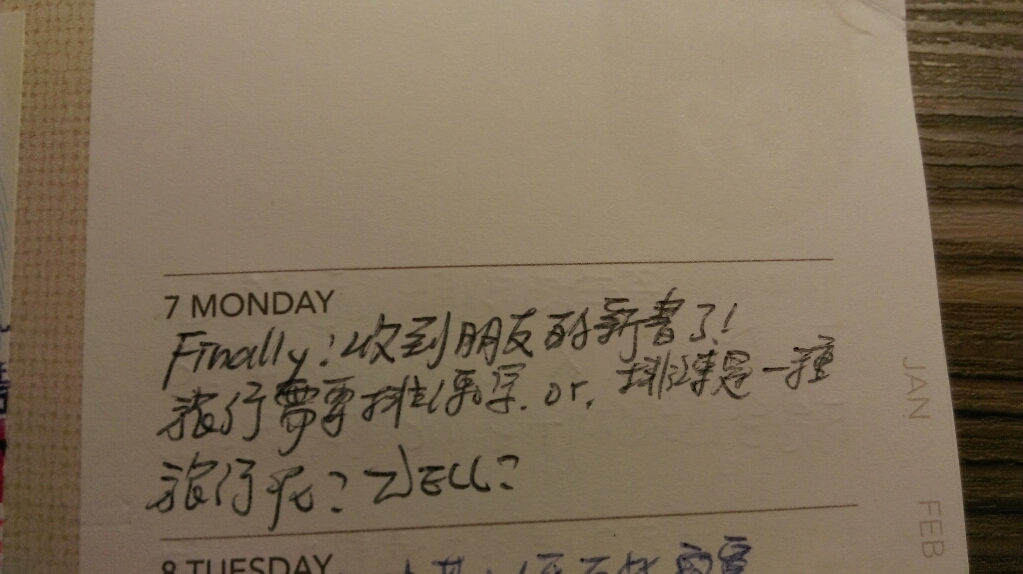 7 MONDAY
Finally! 收到朋友的新書了!
旅行需要排練嗎. or, 排練是一種
旅行呢? WELL?
8 TUESDAY
JAN
FEB